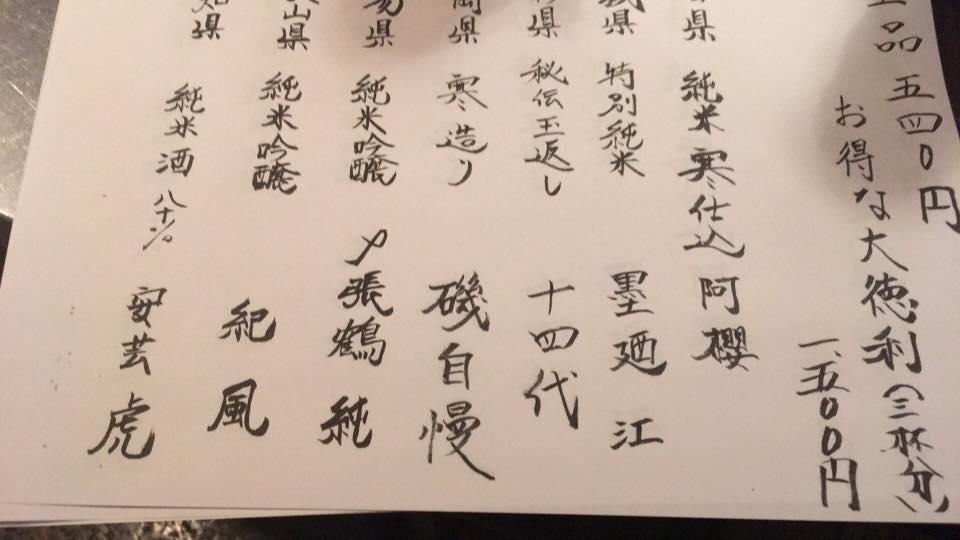 品 五四〇円
お得な大徳利(三杯分)
一、五〇〇円
県 純米 寒仕込 阿櫻
県 特別純米 墨廼江
県 秘伝玉返し 十四代
岡県 寒造り 磯自慢
県 純米吟醸 〆張鶴 純
山県 純米吟醸 紀風
知県 純米酒 八十% 安芸虎